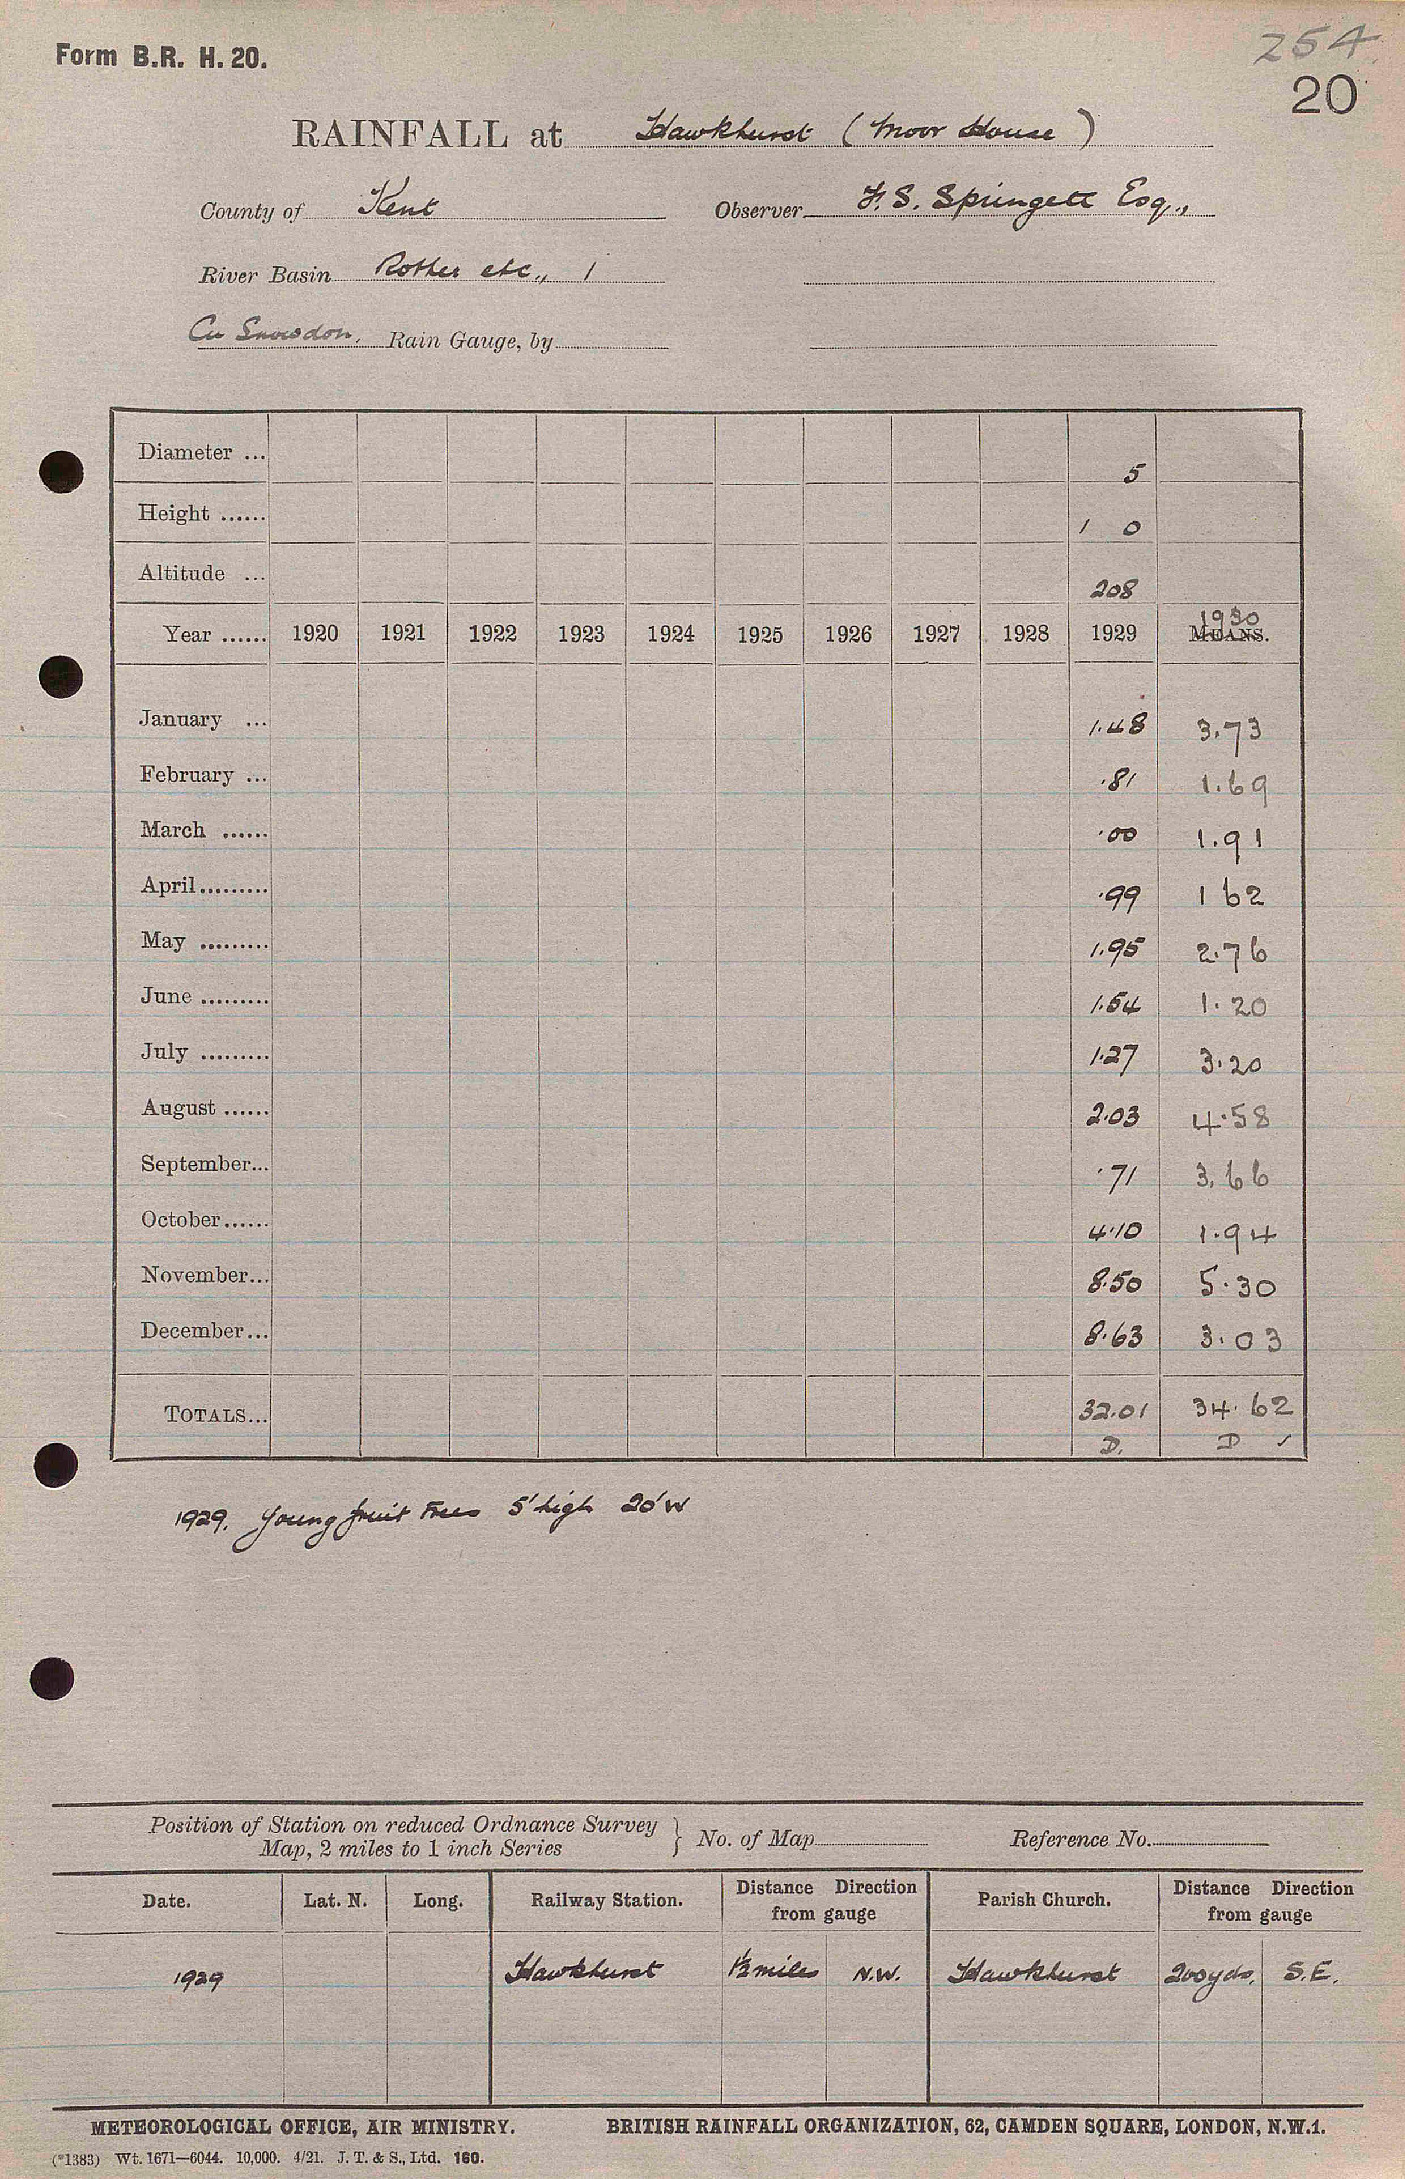 254
Form B.R. H. 20.
20
RAINFALL at Hawkhurst (Moor House)
County of Kent Observer F. S. Springett Esq.,
River Basin Rother etc., 1
Cu Snowdon. Rain Gauge, by
Diameter ... 5
Height ...... 1 0
Altitude ... 208
Year ...... 1920 1921 1922 1923 1924 1925 1926 1927 1928 1929 MEANS. 1930
January ... 1.48 3.73
February ... .81 1.69
March ...... .00 1.91
April ......... .99 1 62
May ......... 1.95 2.76
June ......... 1.54 1.20
July ......... 1.27 3.20
August ...... 2.03 4.58
September... .71 3.66
October ...... 4.10 1.94
November... 8.50 5.30
December... 8.63 3.03
TOTALS... 32.01 34.62
D. D ✓
1929. Young fruit trees 5' high 20' W
Position of Station on reduced Ordnance Survey
Map, 2 miles to 1 inch Series } No. of Map Reference No.
Date. Lat. N. Long. Railway Station. Distance Direction from gauge Parish Church. Distance Direction from gauge
1929 Hawkhurst 1½ miles N.W. Hawkhurst 200 yds. S.E.
METEOROLOGICAL OFFICE, AIR MINISTRY. BRITISH RAINFALL ORGANIZATION, 62, CAMDEN SQUARE, LONDON, N.W.1.
(*1383) Wt. 1671—6044. 10,000. 4/21. J. T. & S., Ltd. 160.